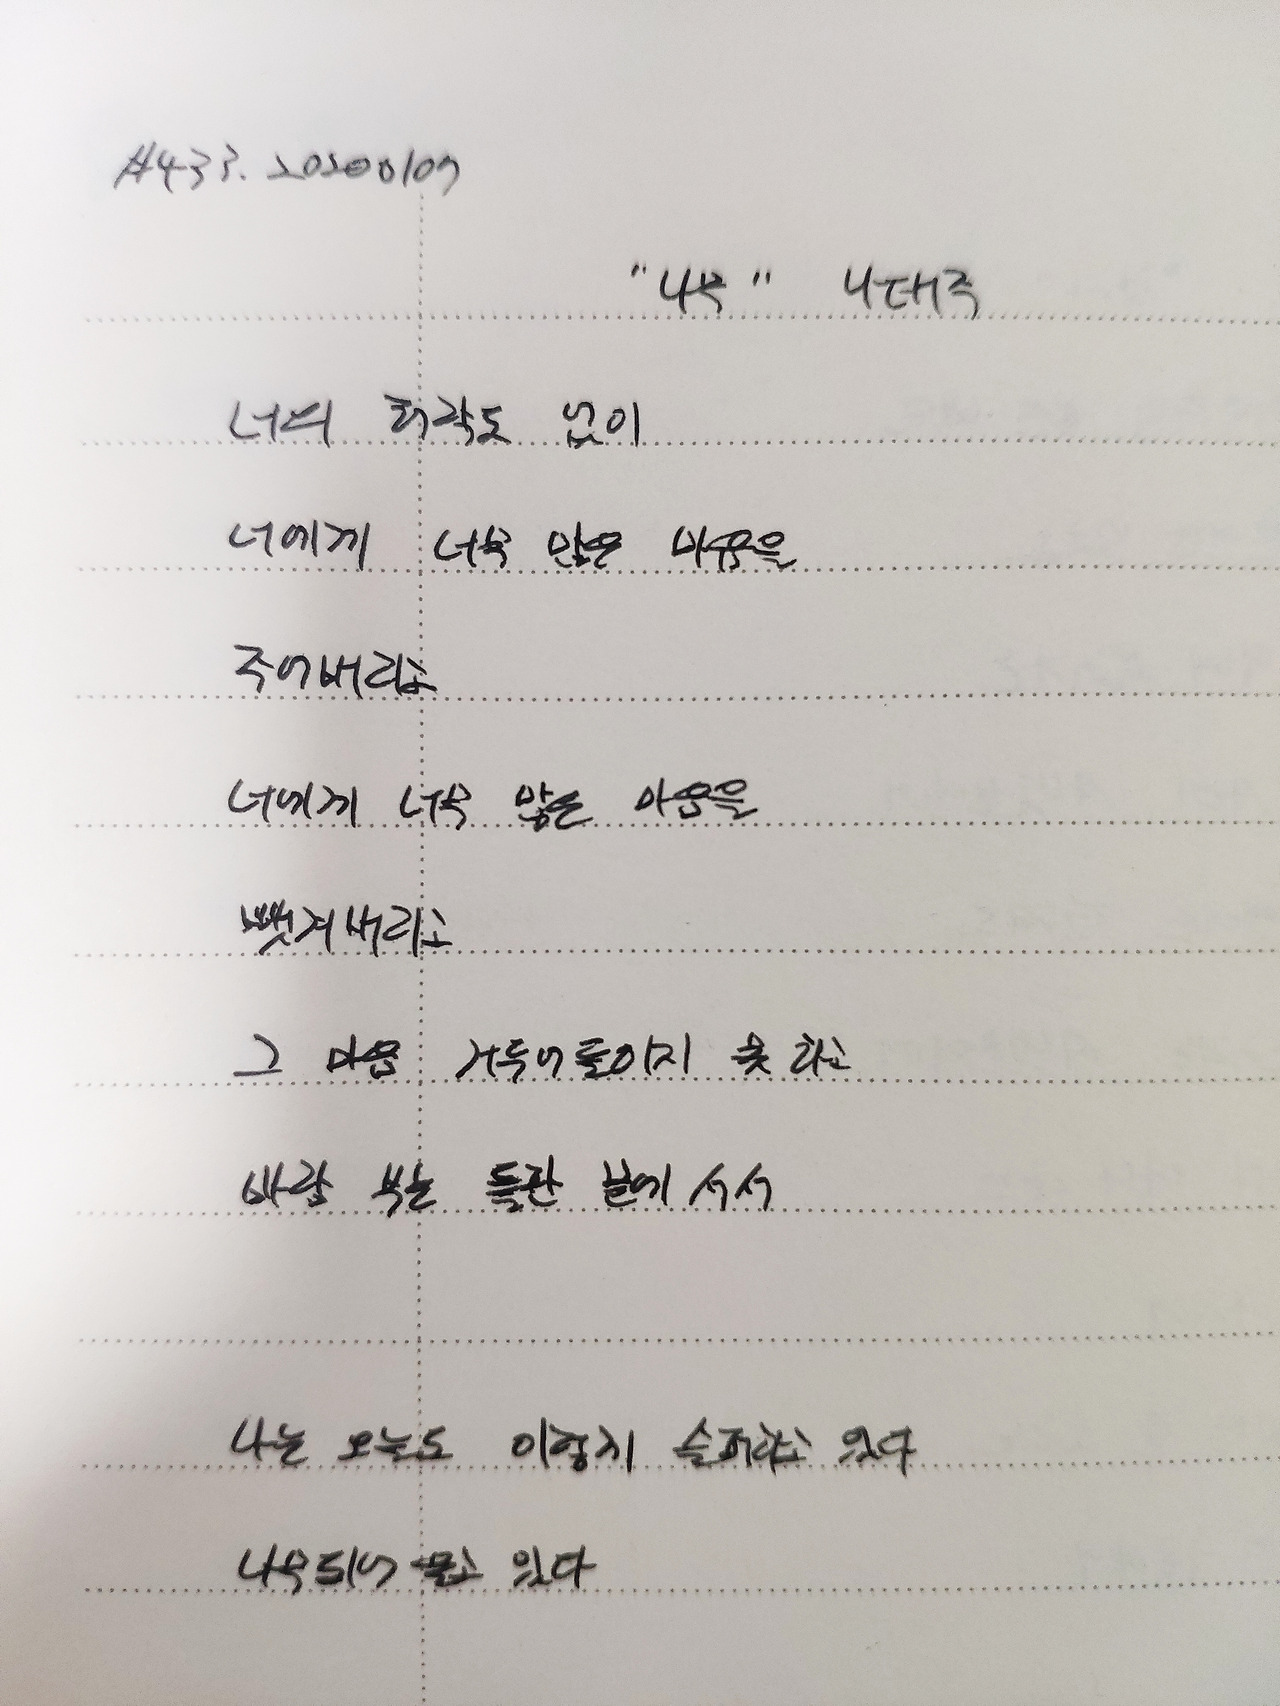 #433. 20200109
"나무" 나태주
너의 허락도 없이
너에게 너무 많은 마음을
주어버리고
너에게 너무 많은 마음을
뺏겨버리고
그 마음 거두어들이지 못하고
바람 부는 들판 끝에 서서
나는 오늘도 이렇게 슬퍼하고 있다
나무되어 울고 있다